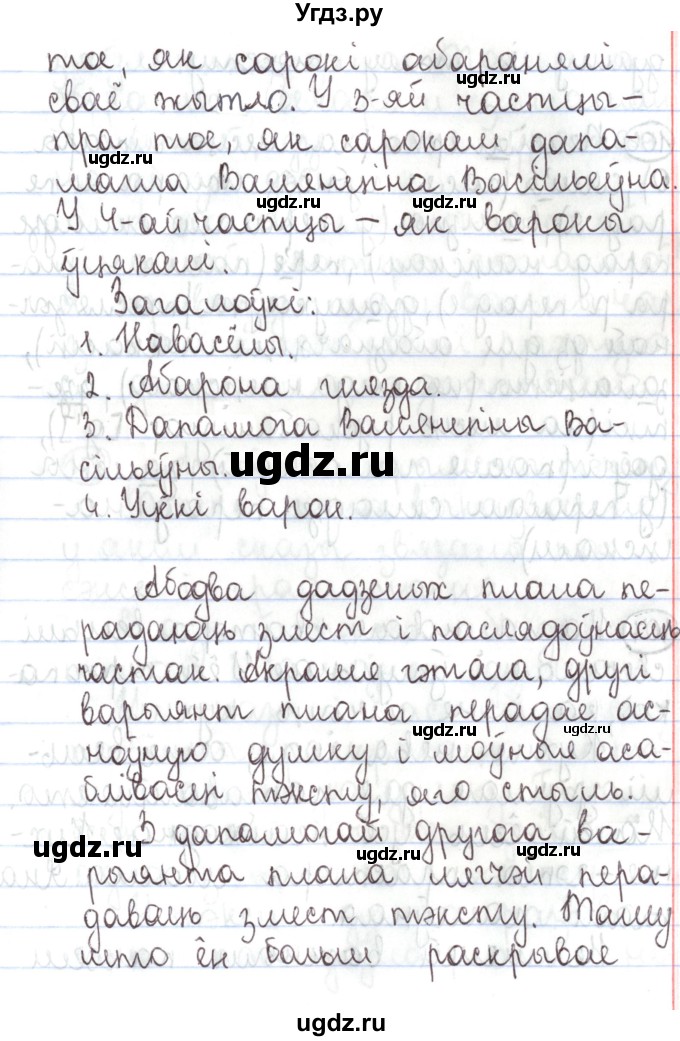 Угдз.ру
тое, як сарокі абаранялі
сваё жытло. У 3-яй частцы –
пра тое, як сарокам дапа-
магла Валянціна Васільеўна.
У 4-ай частцы – як вароны
ўцякалі.
Загалоўкі:
1. Навасёлы.
2. Абарона гнязда.
3. Дапамога Валянціны Ва-
сільеўны.
4. Уцёкі варон.
Абодва дадзеных плана пе-
радаюць змест і паслядоўнасць
частак. Акрамя гэтага, другі
варыянт плана перадае ас-
ноўную думку і моўныя аса-
блівасці тэксту, яго стыль.
З дапамогай другога ва-
рыянта плана лягчэй пера-
даваць змест тэксту. Таму
што ён больш раскрывае
ugdz.ru
ugdz.ru
ugdz.ru
ugdz.ru
ugdz.ru
ugdz.ru
ugdz.ru
ugdz.ru
ugdz.ru
ugdz.ru
ugdz.ru
ugdz.ru
ugdz.ru
ugdz.ru